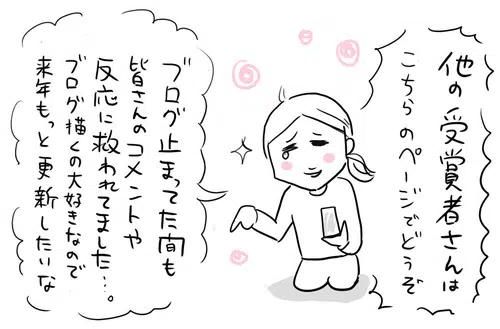 他の受賞者さんは
こちらのページでどうぞ
ブログ止まってた間も
皆さんのコメントや
反応に救われてました…。
ブログ描くの大好きなので
来年もっと更新したいな